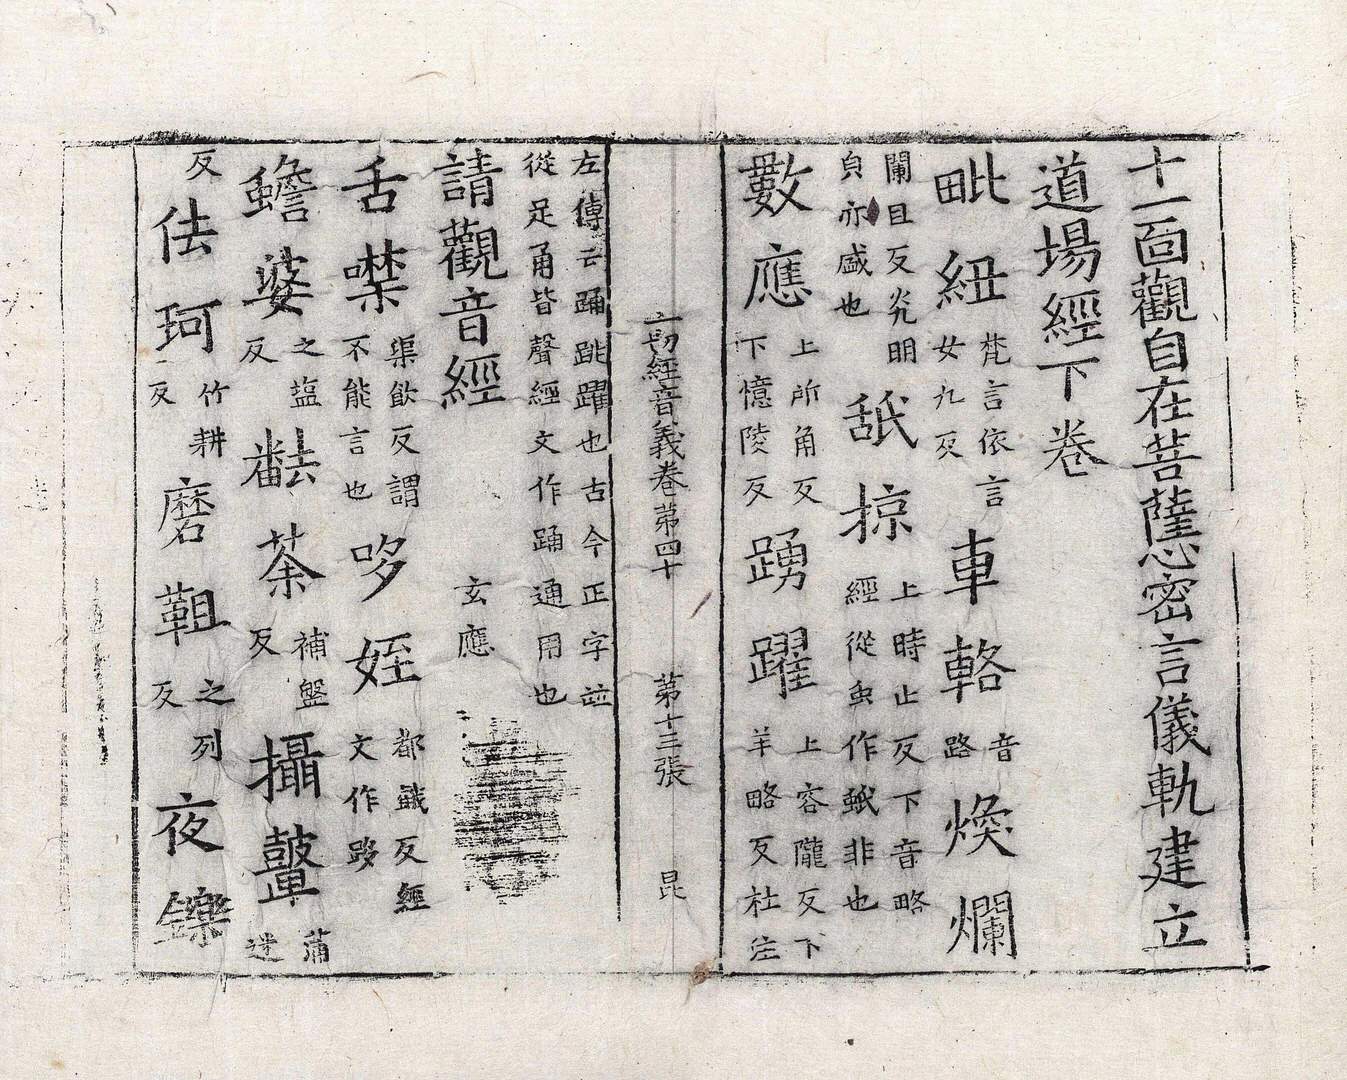 十一面觀自在菩薩心密言儀軌建立
道場經下卷
毗紐 梵言依言女九反 車輅 音路 煥爛
闌旦反炎明皃亦盛也 舐掠 上時止反下音略經從虫作蛾非也
數應 上所角反下憶陵反 踴躍 上容隴反下羊略反杜注
一切經音義卷第四十 第十三張 昆
左傳云踊跳躍也古今正字並從足甬皆聲經文作踊通用也
請觀音經 玄應
舌噤 渠飲反謂不能言也 哆姪 都餓反經文作跢
蟾婆 之塩反 㔇荼 補盤反 攝鼙 蒲迷
反 佉珂 竹耕反 磨䩢 之列反 夜鑠